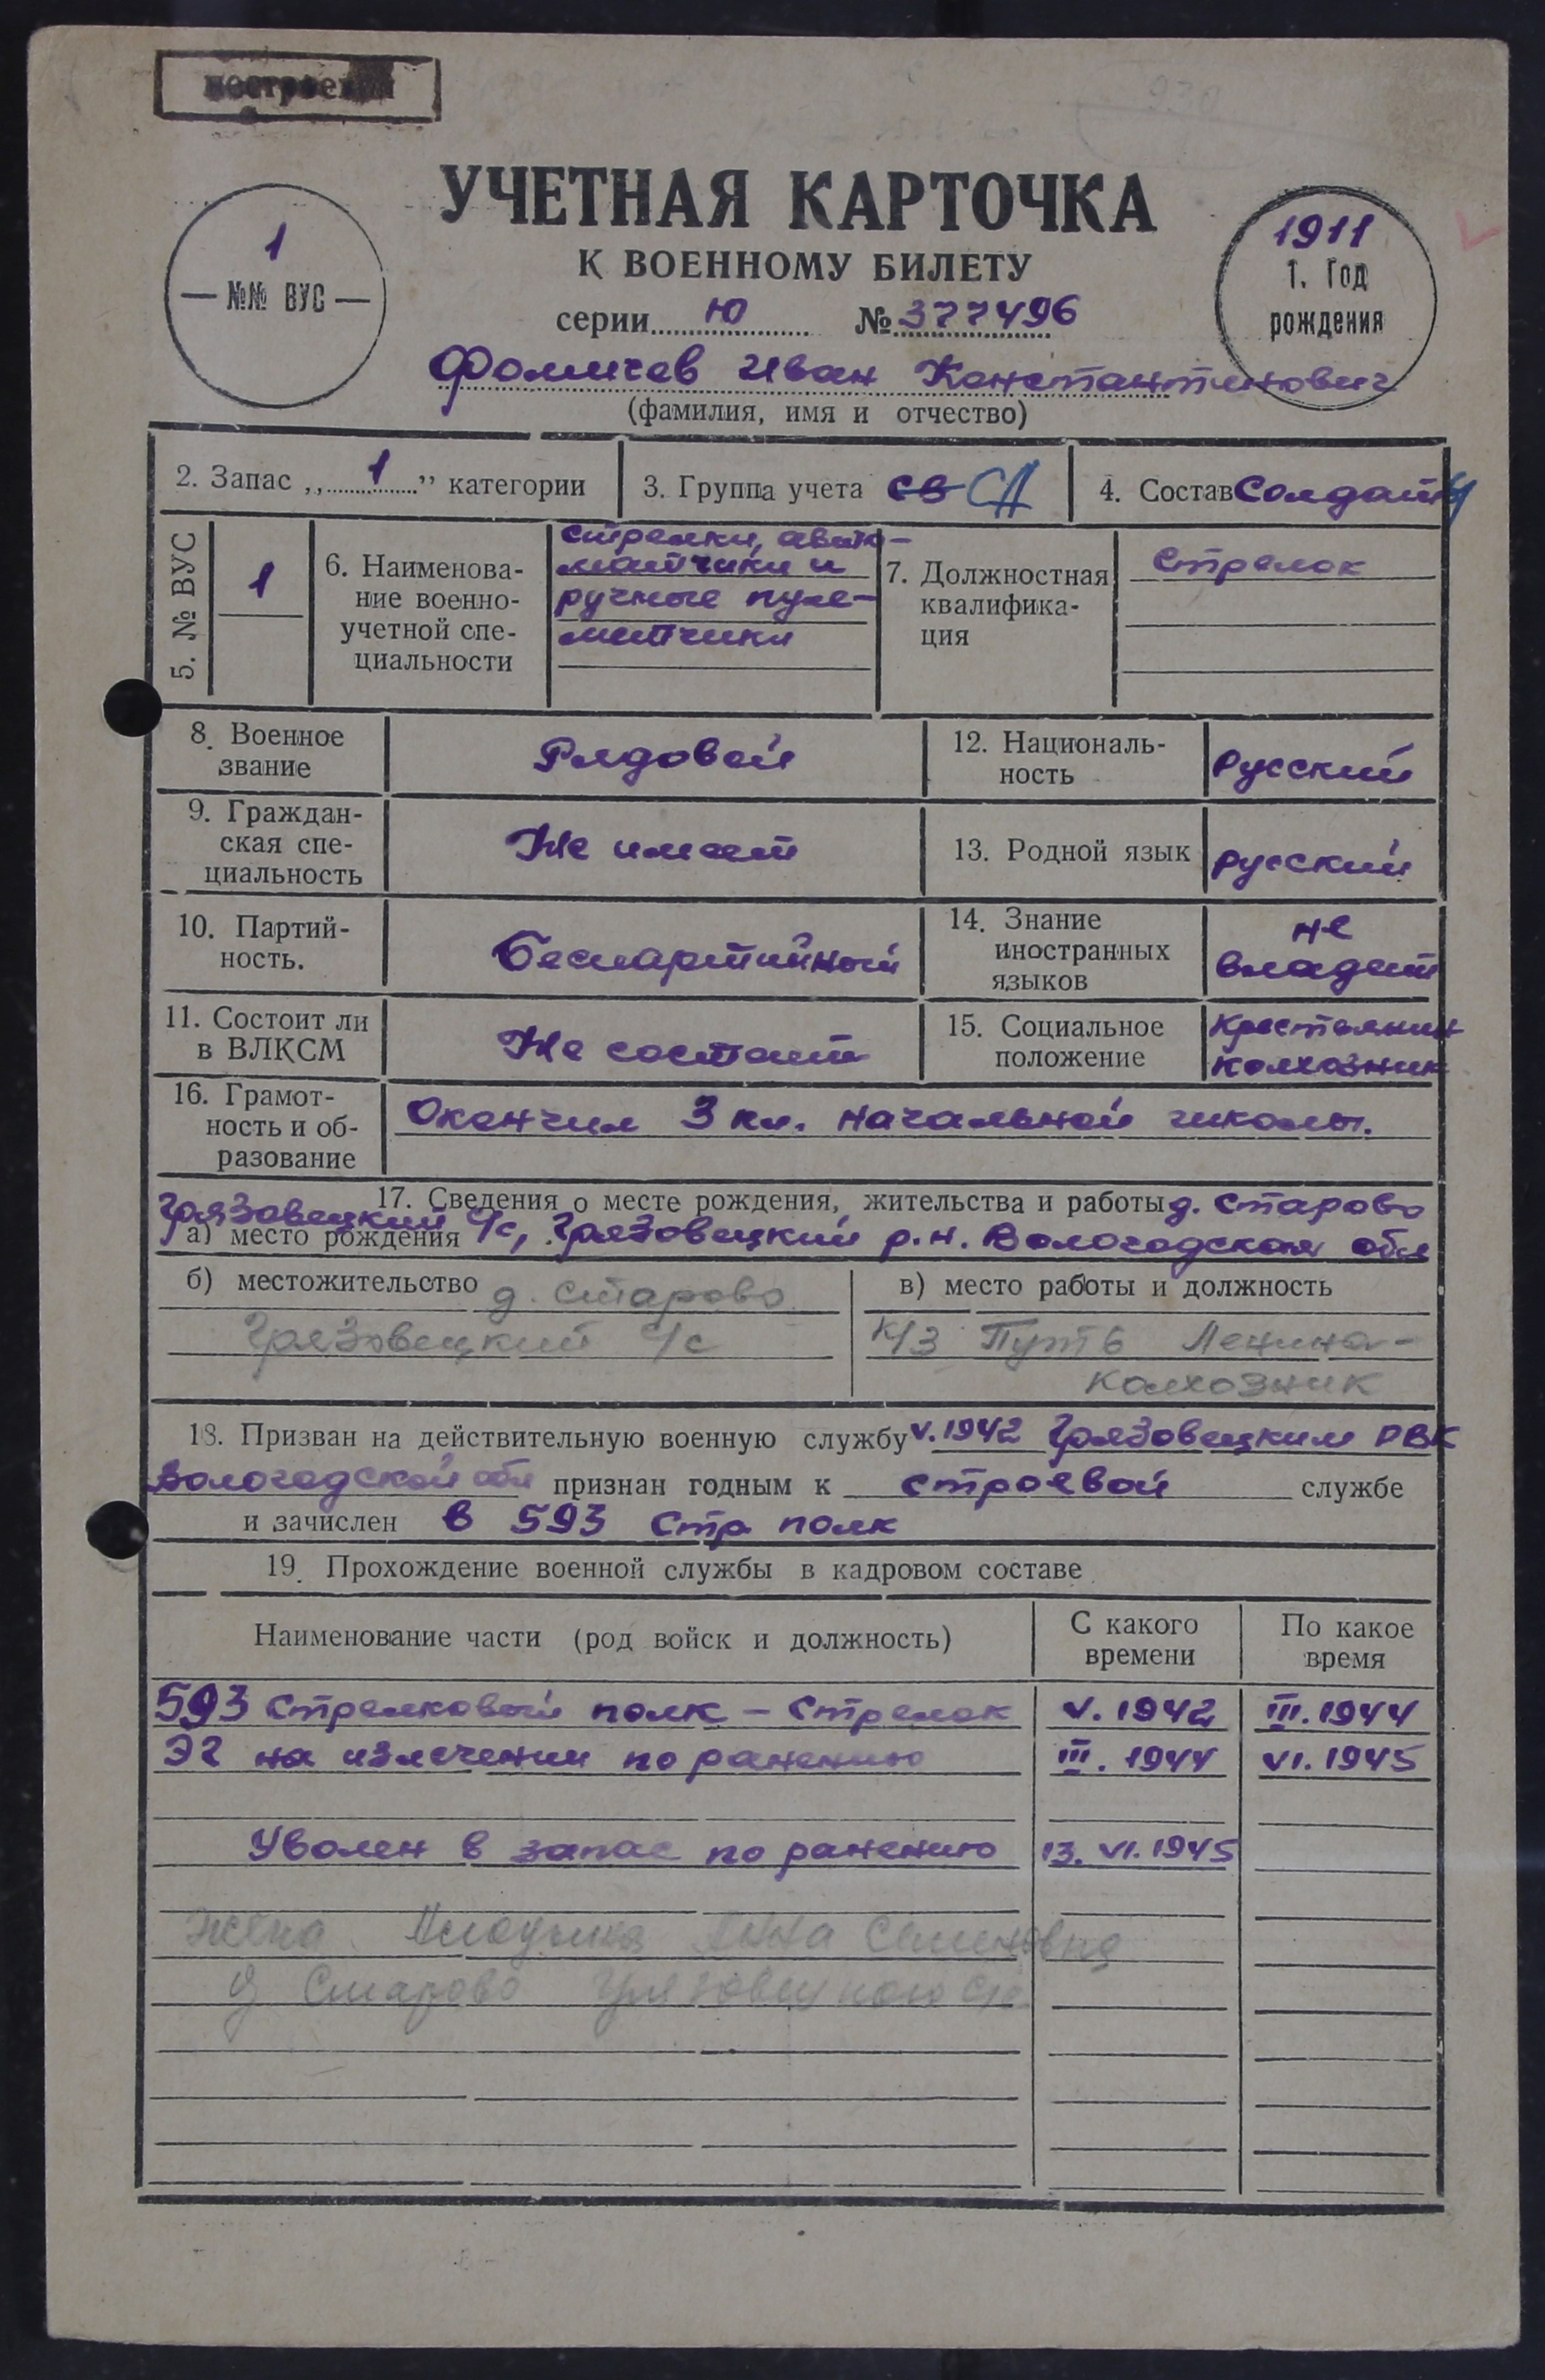 УЧЕТНАЯ КАРТОЧКА
К ВОЕННОМУ БИЛЕТУ
серии Ю № 377496
1
— №№ ВУС —
1911
1. Год
рождения
Фомичев Иван Константинович
(фамилия, имя и отчество)
2. Запас „ 1 ” категории
3. Группа учета св СА
4. Состав Солдаты
5. № ВУС
1
6. Наименова-
ние военно-
учетной спе-
циальности
стрелки, авто-
матчики и
ручные пуле-
метчики
7. Должностная
квалифика-
ция
Стрелок
8. Военное
звание
Рядовой
12. Националь-
ность
Русский
9. Граждан-
ская спе-
циальность
Не имеет
13. Родной язык
русский
10. Партий-
ность.
Беспартийный
14. Знание
иностранных
языков
не
владеет
11. Состоит ли
в ВЛКСМ
Не состоит
15. Социальное
положение
Крестьянин
колхозник
16. Грамот-
ность и об-
разование
Окончил 3 кл. начальной школы.
17. Сведения о месте рождения, жительства и работы д. Старово
а) место рождения Грязовецкий с/с, Грязовецкий р.н. Вологодская обл
б) местожительство д. Старово
Грязовецкий с/с
в) место работы и должность
к/з Путь Ленина-
колхозник
18. Призван на действительную военную службу V.1942 Грязовецким РВК
Вологодской обл признан годным к строевой службе
и зачислен в 593 стр полк
19. Прохождение военной службы в кадровом составе
Наименование части (род войск и должность)
С какого
времени
По какое
время
593 стрелковый полк – стрелок V. 1942 III. 1944
ЭГ на излечении по ранению III. 1944 VI. 1945
Уволен в запас по ранению 13. VI. 1945
Жена Анна Семеновна
д Старово Грязовецкого с/с